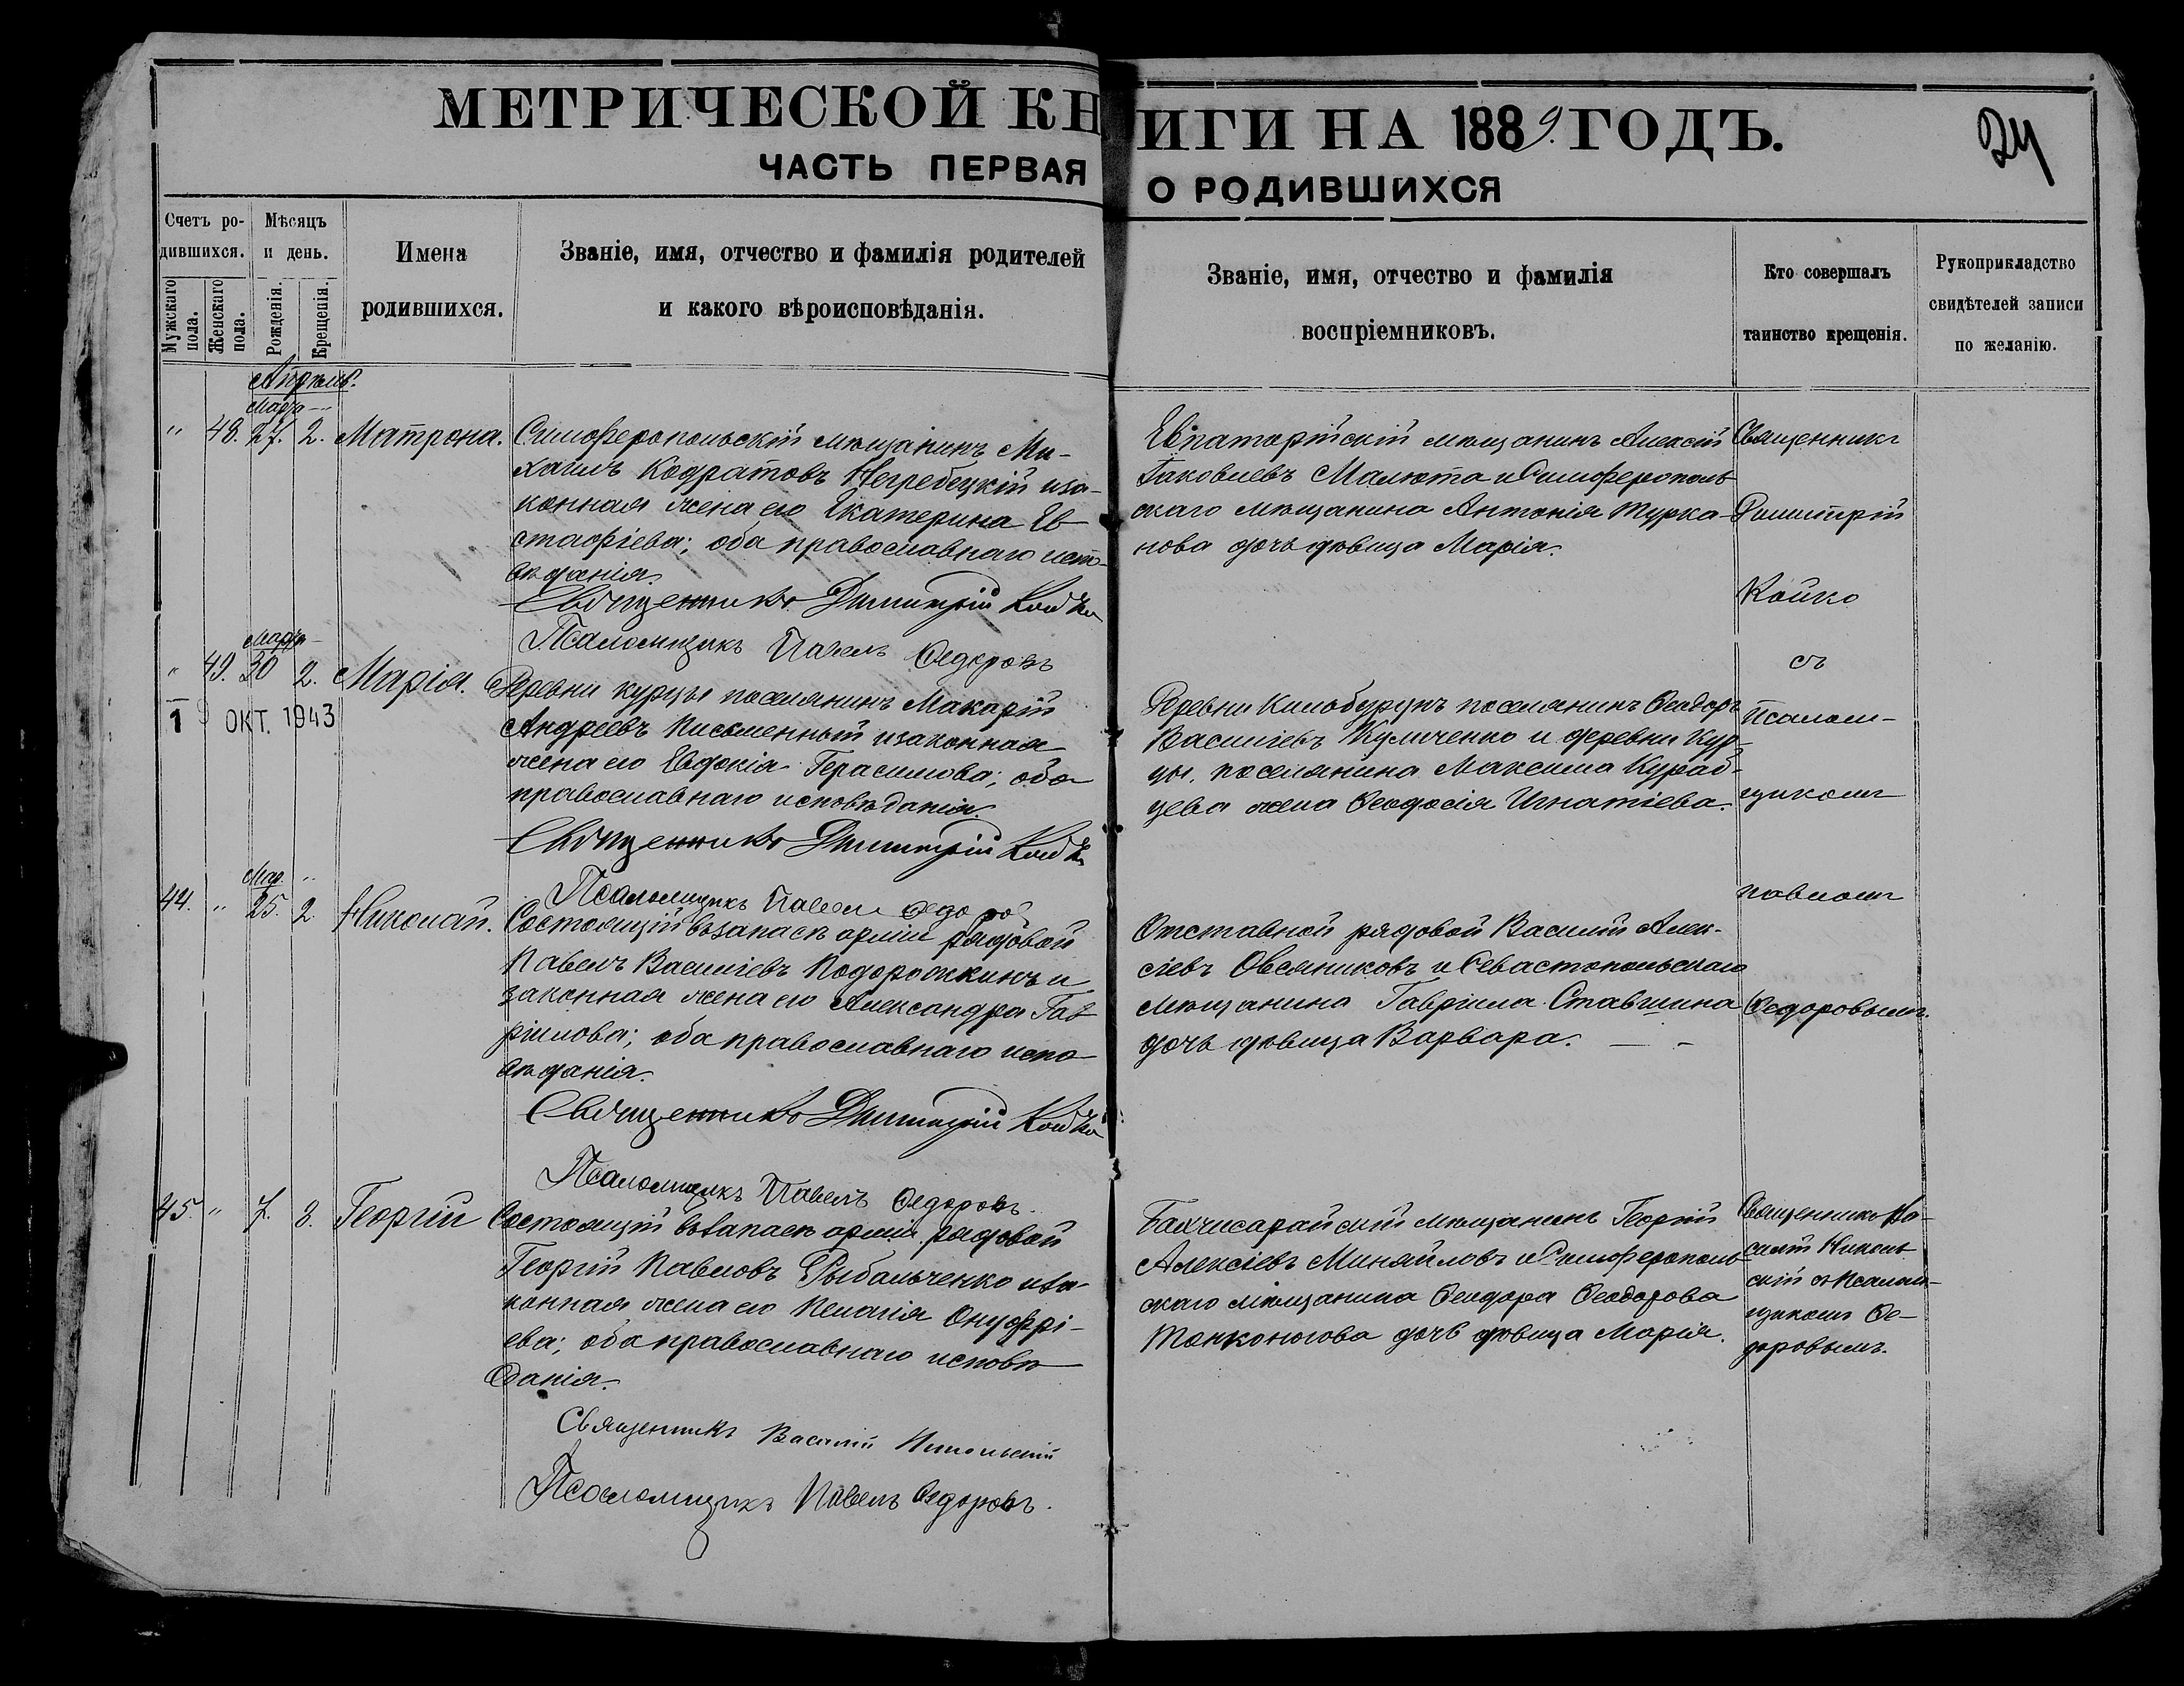 МЕТРИЧЕСКОЙ КНИГИ НА 1889. ГОДЪ.
24
ЧАСТЬ ПЕРВАЯ О РОДИВШИХСЯ
Счетъ ро-
дившихся.
Мужскаго
пола.
Женскаго
пола.
Мѣсяцъ
и день.
Рожденія.
Крещенія.
Имена
родившихся.
Званіе, имя, отчество и фамилія родителей
и какого вѣроисповѣданія.
Званіе, имя, отчество и фамилія
воспріемниковъ.
Кто совершалъ
таинство крещенія.
Рукоприкладство
свидѣтелей записи
по желанію.
Апрѣль.
Марта
" 48. 27. 2. Матрона.
Симферопольскій мѣщанинъ Ми-
хаилъ Кодратовъ Негребецкій и за-
конная жена его Екатерина Ев-
стафіева; оба православнаго испо-
вѣданія.
Священникъ Димитрій Койко
Псаломщикъ Павелъ Федоровъ
Евпаторійскій мѣщанинъ Алексій
Іаковлевъ Малюта и Симферополь
скаго мѣщанина Антонія Турка-
нова дочь дѣвица Марія.
Священникъ
Димитрій
Койко
съ
Псалом-
щикомъ
Павломъ
Федоровымъ.
Марта
" 49. 30 2. Марія.
19 ОКТ. 1943
Деревни Курцы поселянинъ Макарій
Андреевъ Письменный и законная
жена его Евдокія Герасимова; оба
православнаго исповѣданія.
Священникъ Димитрій Койко
Псаломщикъ Павелъ Федоров
Деревни Кильбурунъ поселянинъ Феодоръ
Василіевъ Куличенко и деревни Кур-
цы, поселянина Максима Кураб-
цева жена Феодосія Игнатіева.
Мар. "
44. " 25. 2. Николай.
Состоящій въ запасѣ арміи рядовой
Павелъ Василіевъ Подорожкинъ и
законная жена его Александра Гав
ріилова; оба православнаго испо-
вѣданія.
Священникъ Димитрій Койко
Псаломщикъ Павелъ Федоровъ.
Отставной рядовой Василій Алек-
сіевъ Овсяниковъ и Севастопольскаго
мѣщанина Гавріила Ставшина
дочь дѣвица Варвара.
45. " 7. 3. Георгій
Состоящій въ запасѣ арміи рядовой
Георгій Павловъ Рыбальченко и за-
конная жена его Пелагія Онуфрі-
ева; оба православнаго исповѣ
данія.
Священникъ Василій Никольскій
Псаломщикъ Павелъ Федоровъ.
Бахчисарайскій мѣщанинъ Георгій
Алексіевъ Миняйловъ и Симферополь
скаго мѣщанина Феодора Феодорова
Тонконогова дочь дѣвица Марія.
Священникъ Ва-
силій Николь
скій съ Псалом-
щикомъ Фе-
доровымъ.